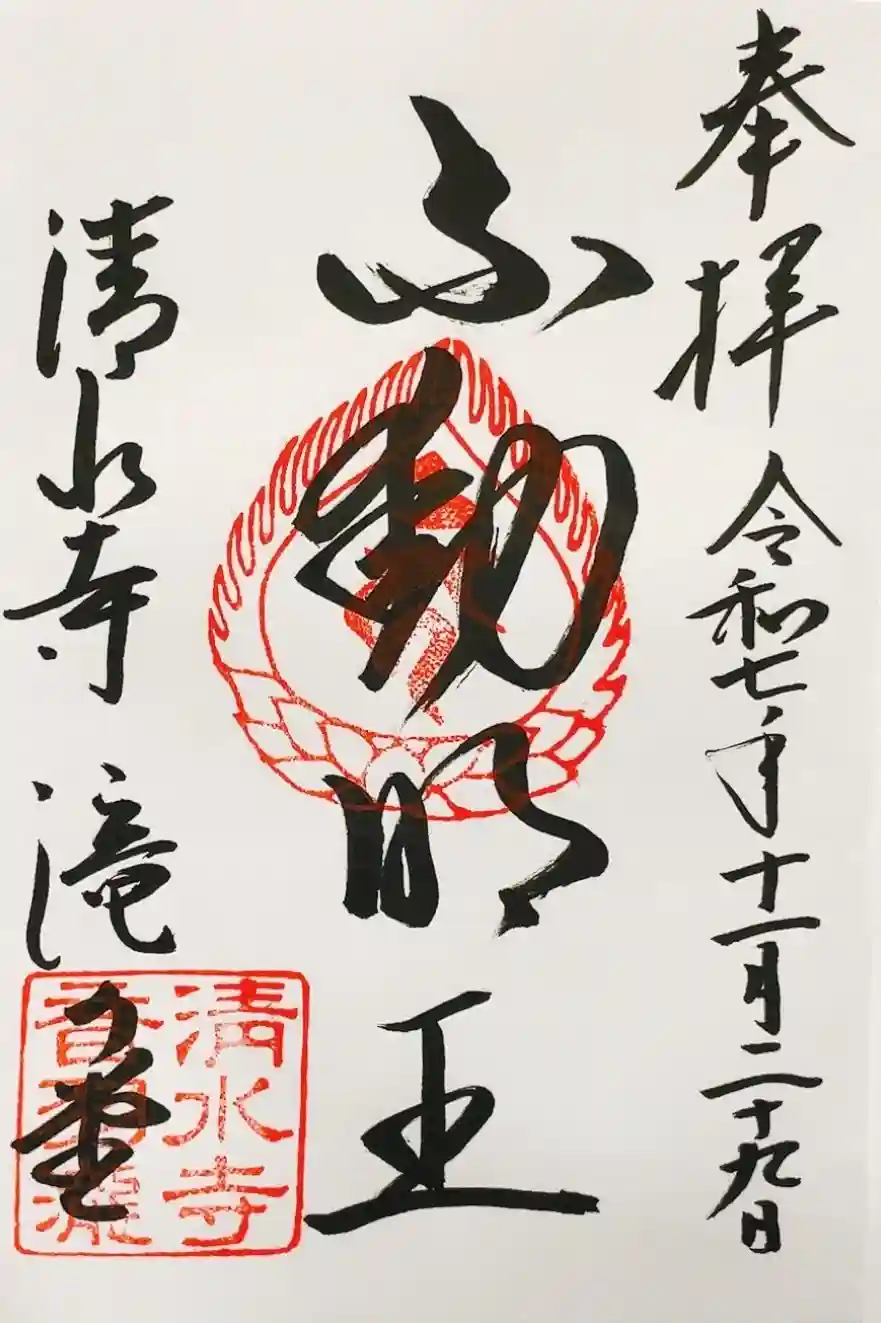 奉拝
令和七年十一月二十九日
不動明王
清水寺 滝の堂
清水寺
音羽瀧